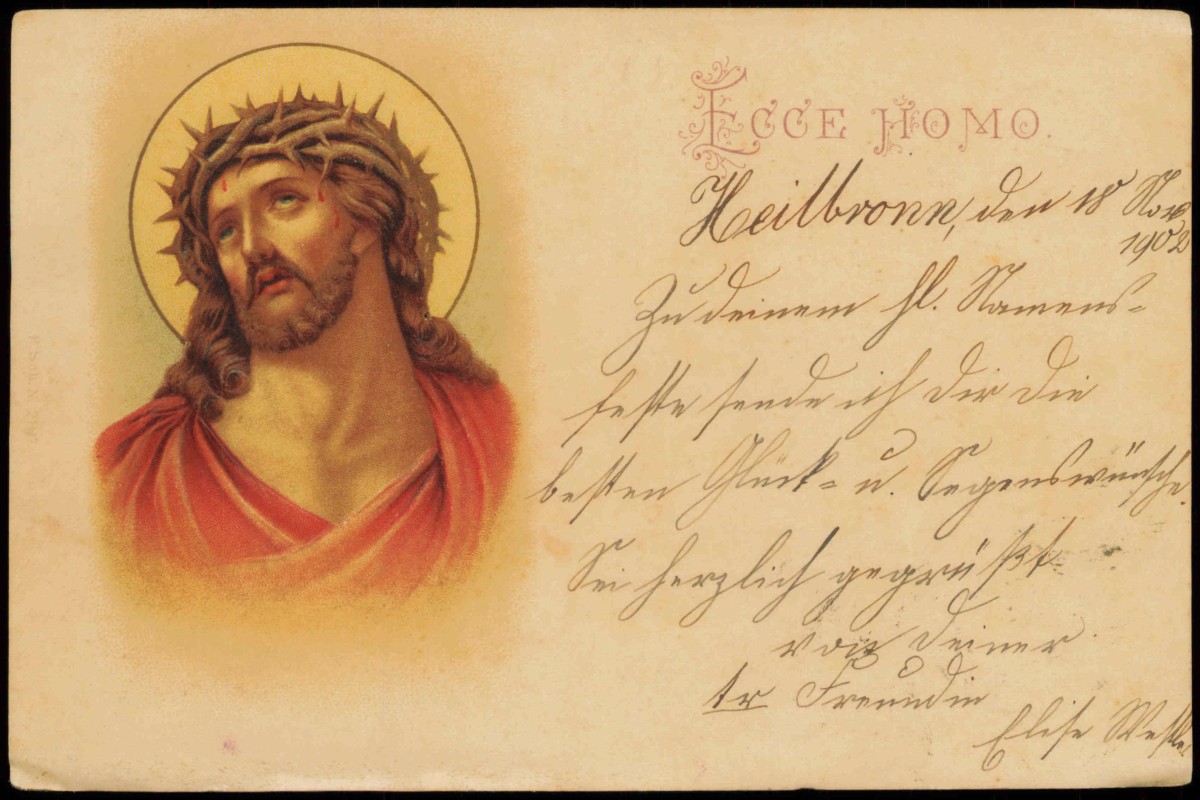 ECCE HOMO.
Heilbronn, den 18 Nov
1902
Zu deinem hl. Namens-
feste sende ich dir die
besten Glück- u. Segenswünsche.
Sei herzlich gegrüßt
von deiner
tr Freundin
Elise